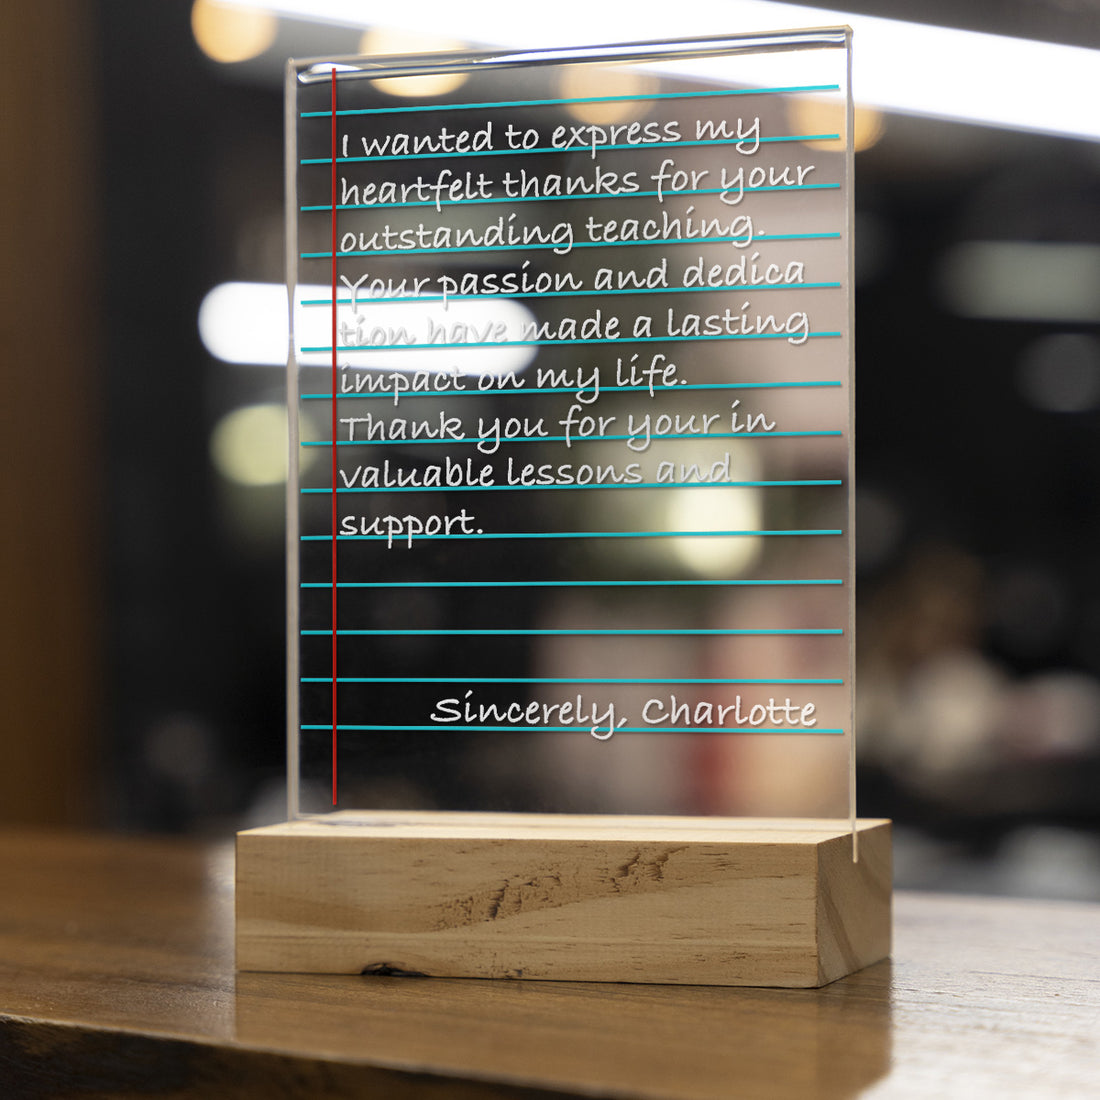 I wanted to express my
heartfelt thanks for your
outstanding teaching.
Your passion and dedica
tion have made a lasting
impact on my life.
Thank you for your in
valuable lessons and
support.
Sincerely, Charlotte